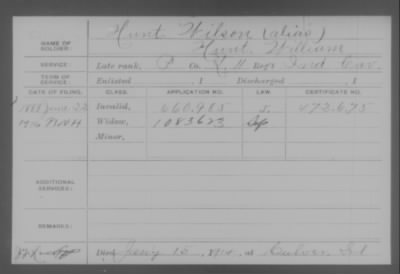 NAME OF SOLDIER:
Hunt Wilson (alias)
Hunt, William
SERVICE:
Late rank, P Co. Reg't Ind Cav.
TERM OF SERVICE:
Enlisted , 1 Discharged , 1
DATE OF FILING. CLASS. APPLICATION NO. LAW. CERTIFICATE NO.
1888 June 22 Invalid, 660.985 472.675
Widow, 1083623
Minor,
ADDITIONAL SERVICES:
REMARKS:
Died 191 at Culver Ind